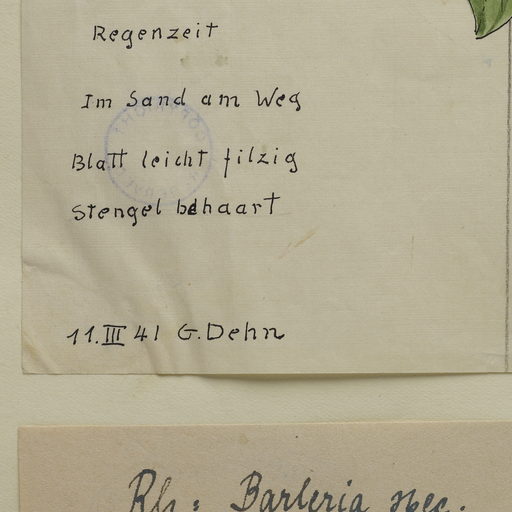 Regenzeit
Im Sand am Weg
Blatt leicht filzig
Stengel behaart
11.III 41 G. Dehn
Rh: Barleria spec.